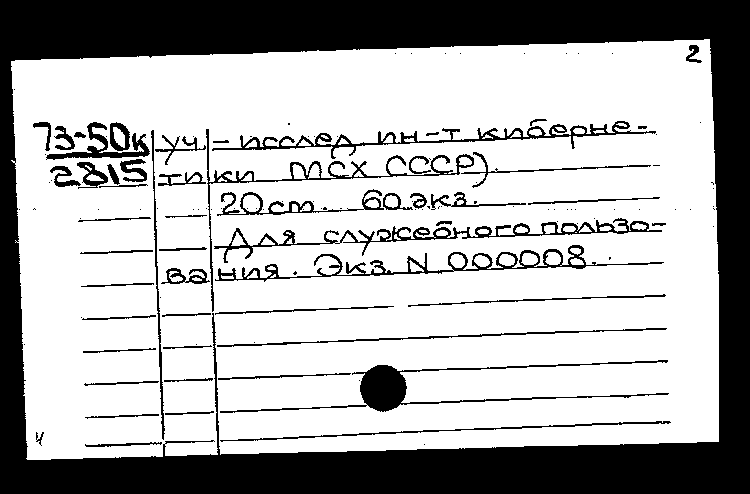 2
73-50к уч.-исслед. ин-т киберне-
2815 тики МСХ СССР).
20 cm. 60 экз.
Для служебного пользо-
вания. Экз. N 000008.
ч